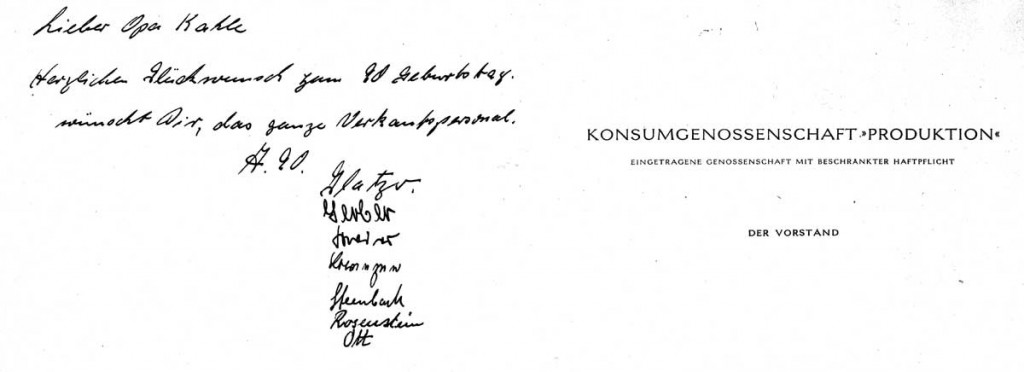 Lieber Opa Kahle
Herzlichen Glückwunsch zum 90 Geburtstag.
wünscht Dir, das ganze Verkaufspersonal.
Gerber
Steinbach
Rosenstein
Ott
KONSUMGENOSSENSCHAFT »PRODUKTION«
EINGETRAGENE GENOSSENSCHAFT MIT BESCHRÄNKTER HAFTPFLICHT
DER VORSTAND